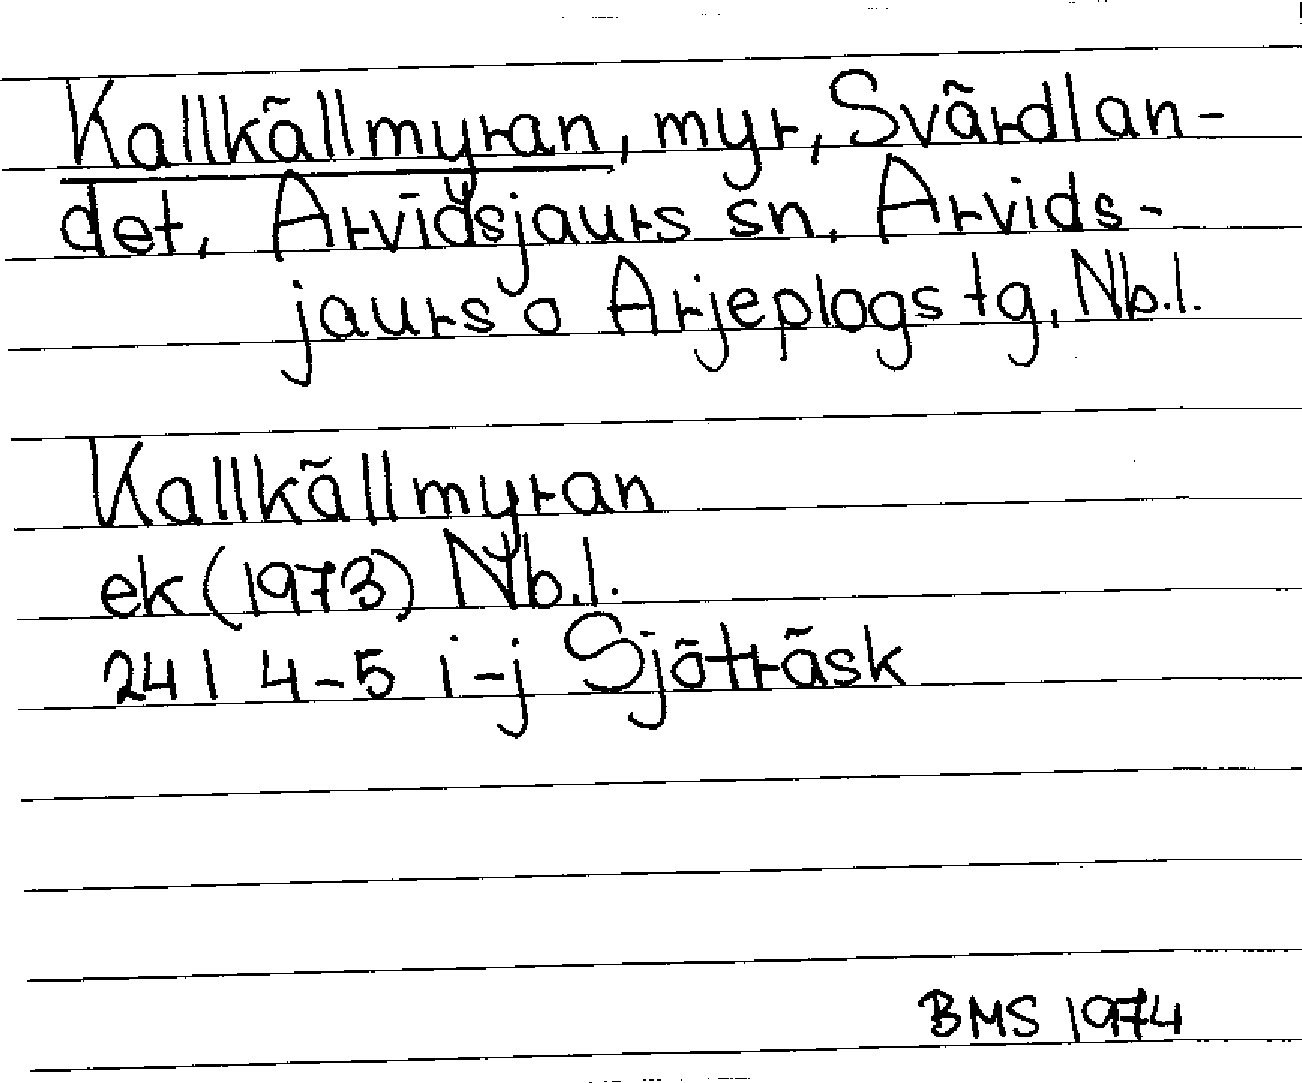 Kallkällmyran, myr, Svärdlan-
det, Arvidsjaurs sn, Arvids-
jaurs o Arjeplogs tg, Nb.l.
Kallkällmyran
ek (1973) Nb.l.
24 I 4-5 i-j Sjöträsk
BMS 1974